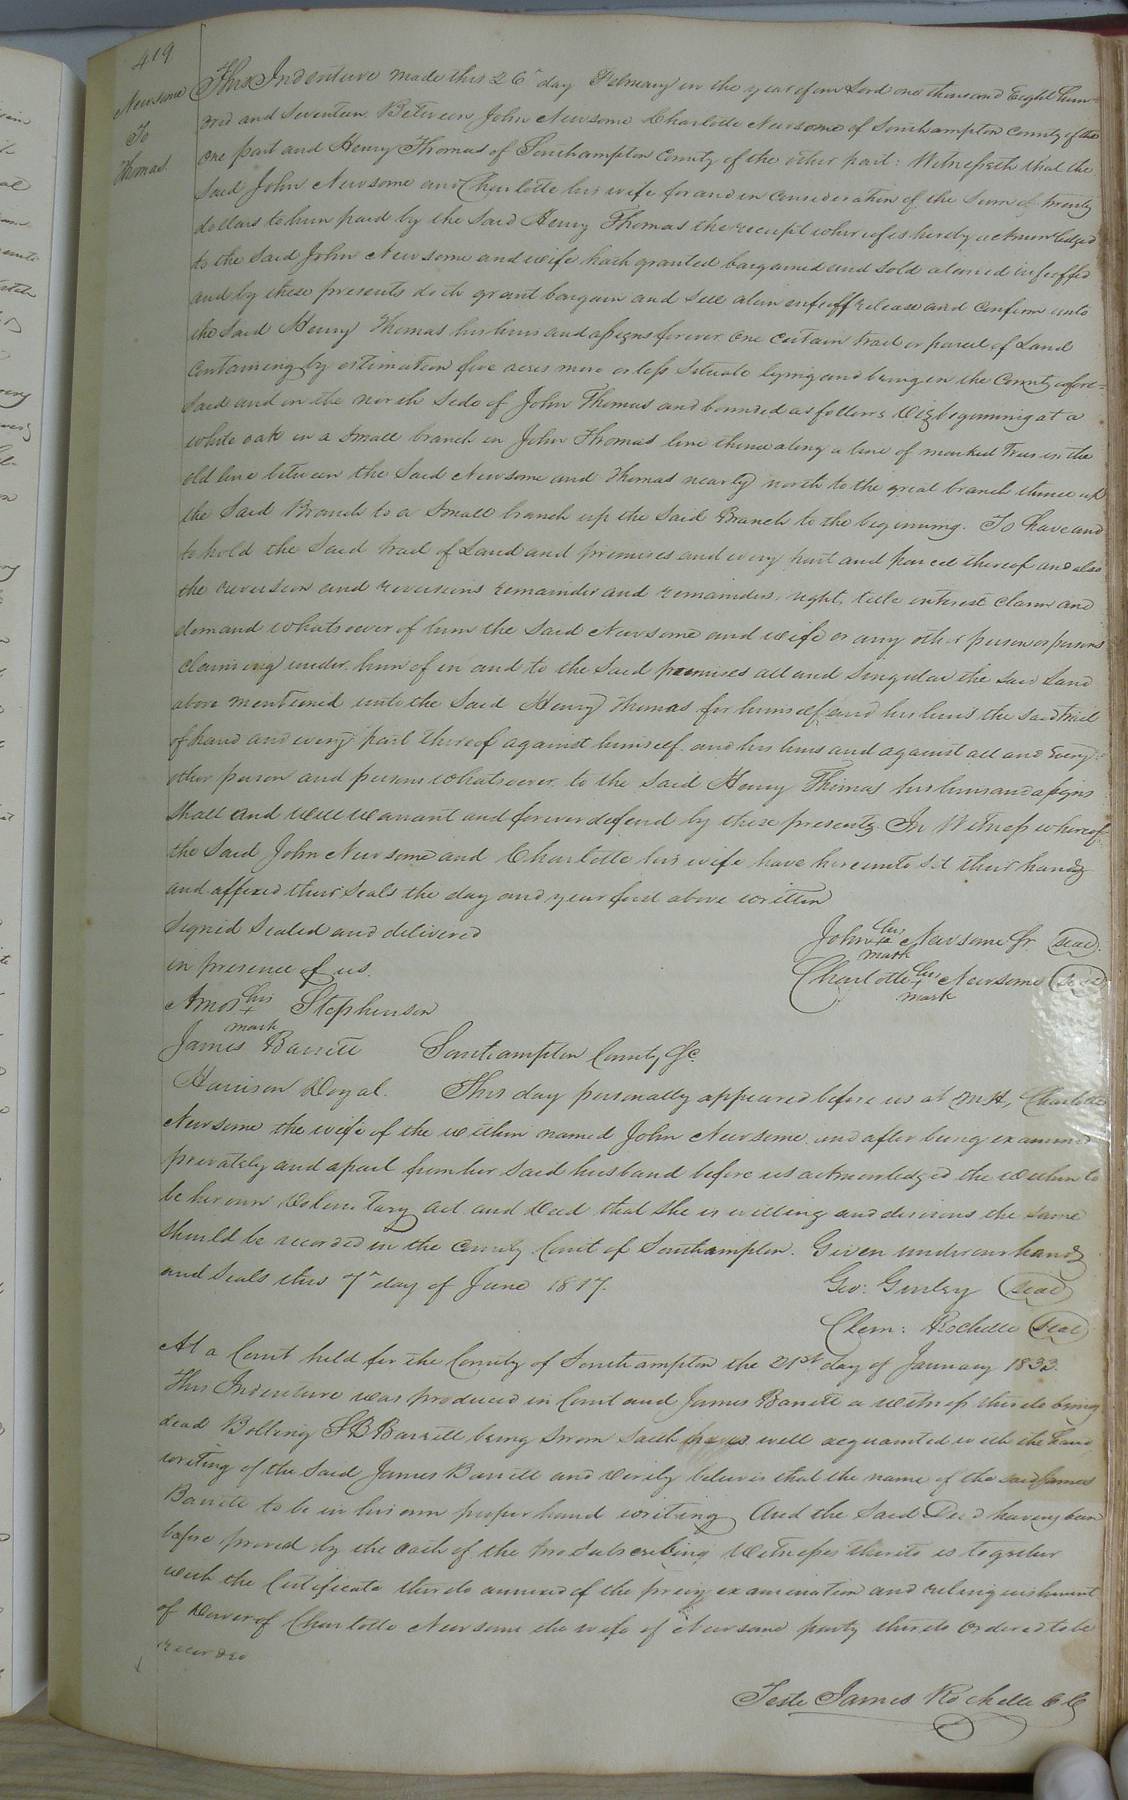 419
Newsome
To
Thomas.
This Indenture made this 26th day February in the year of our Lord one thousand Eight hun-
dred and Seventeen Between John Newsome Charlotte Newsome of Southampton County of the
one part and Henry Thomas of Southampton County of the other part: Witnesseth that the
said John Newsome and Charlotte his wife for and in consideration of the Sum of twenty
dollars to him paid by the Said Henry Thomas the receipt whereof is hereby acknowledged
to the Said John Newsome and wife hath granted bargained and sold aliened infeoffed
and by these presents doth grant bargain and sell alien enfeoff release and confirm unto
the Said Henry Thomas his heirs and assigns forever one certain tract or parcel of Land
Containing by estimation five acres more or less Situate lying and being in the County afore=
said and on the north Side of John Thomas and bounded as follows Viz beginning at a
white oak in a small branch in John Thomas line thence along a line of marked Trees in the
old line between the Said Newsome and Thomas nearly north to the great branch thence up
the Said Branch to a Small branch up the Said Branch to the beginning. To have and
to hold the Said tract of Land and premises and every part and parcel thereof and also
the reversion and reversions remainder and remainders, right, title interest claim and
demand whatsoever of him the Said Newsome and wife or any other person or persons
claiming under him of in and to the Said premises all and Singular the said Land
above mentioned unto the Said Henry Thomas for himself and his heirs the said tract
of Land and every part thereof against himself and his heirs and against all and Every
other person and persons whatsoever to the Said Henry Thomas his heirs and assigns
Shall and will warrant and forever defend by these presents. In Witness whereof
the Said John Newsome and Charlotte his wife have hereunto set their hands
and affixed their Seals the day and year first above written
Signed Sealed and delivered
in presence of us.
John his + mark Newsome Sr (seal)
Charlotte her + mark Newsome (seal)
Amos his + mark Stephenson
James Barrett Southampton County Sc.
Harrison Doyal. This day personally appeared before us at Charlotte
Newsome the wife of the within named John Newsome and after being examined
privately and apart from her Said husband before us acknowledged the within to
be her own Voluntary act and Deed that She is willing and desirous the same
Should be recorded in the County Court of Southampton. Given under our hands
and Seals this 7th day of June 1817. Geo: Gurley (seal)
Clem: Rochelle (seal)
At a Court held for the County of Southampton the 21st day of January 1833.
This Indenture was produced in Court and James Barrett a witness thereto being
dead Bolling S B Barrett being Sworn saith he is well acquainted with the hand
writing of the Said James Barrett and verily believes that the name of the said James
Barrett to be in his own proper hand writing And the Said Deed having been
before proved by the oath of the two Subscribing Witnesses thereto is together
with the Certificate thereto annexed of the privy examination and relinquishment
of dower of Charlotte Newsome the wife of Newsome party thereto Ordered to be
recorded
Teste James Rochelle CC